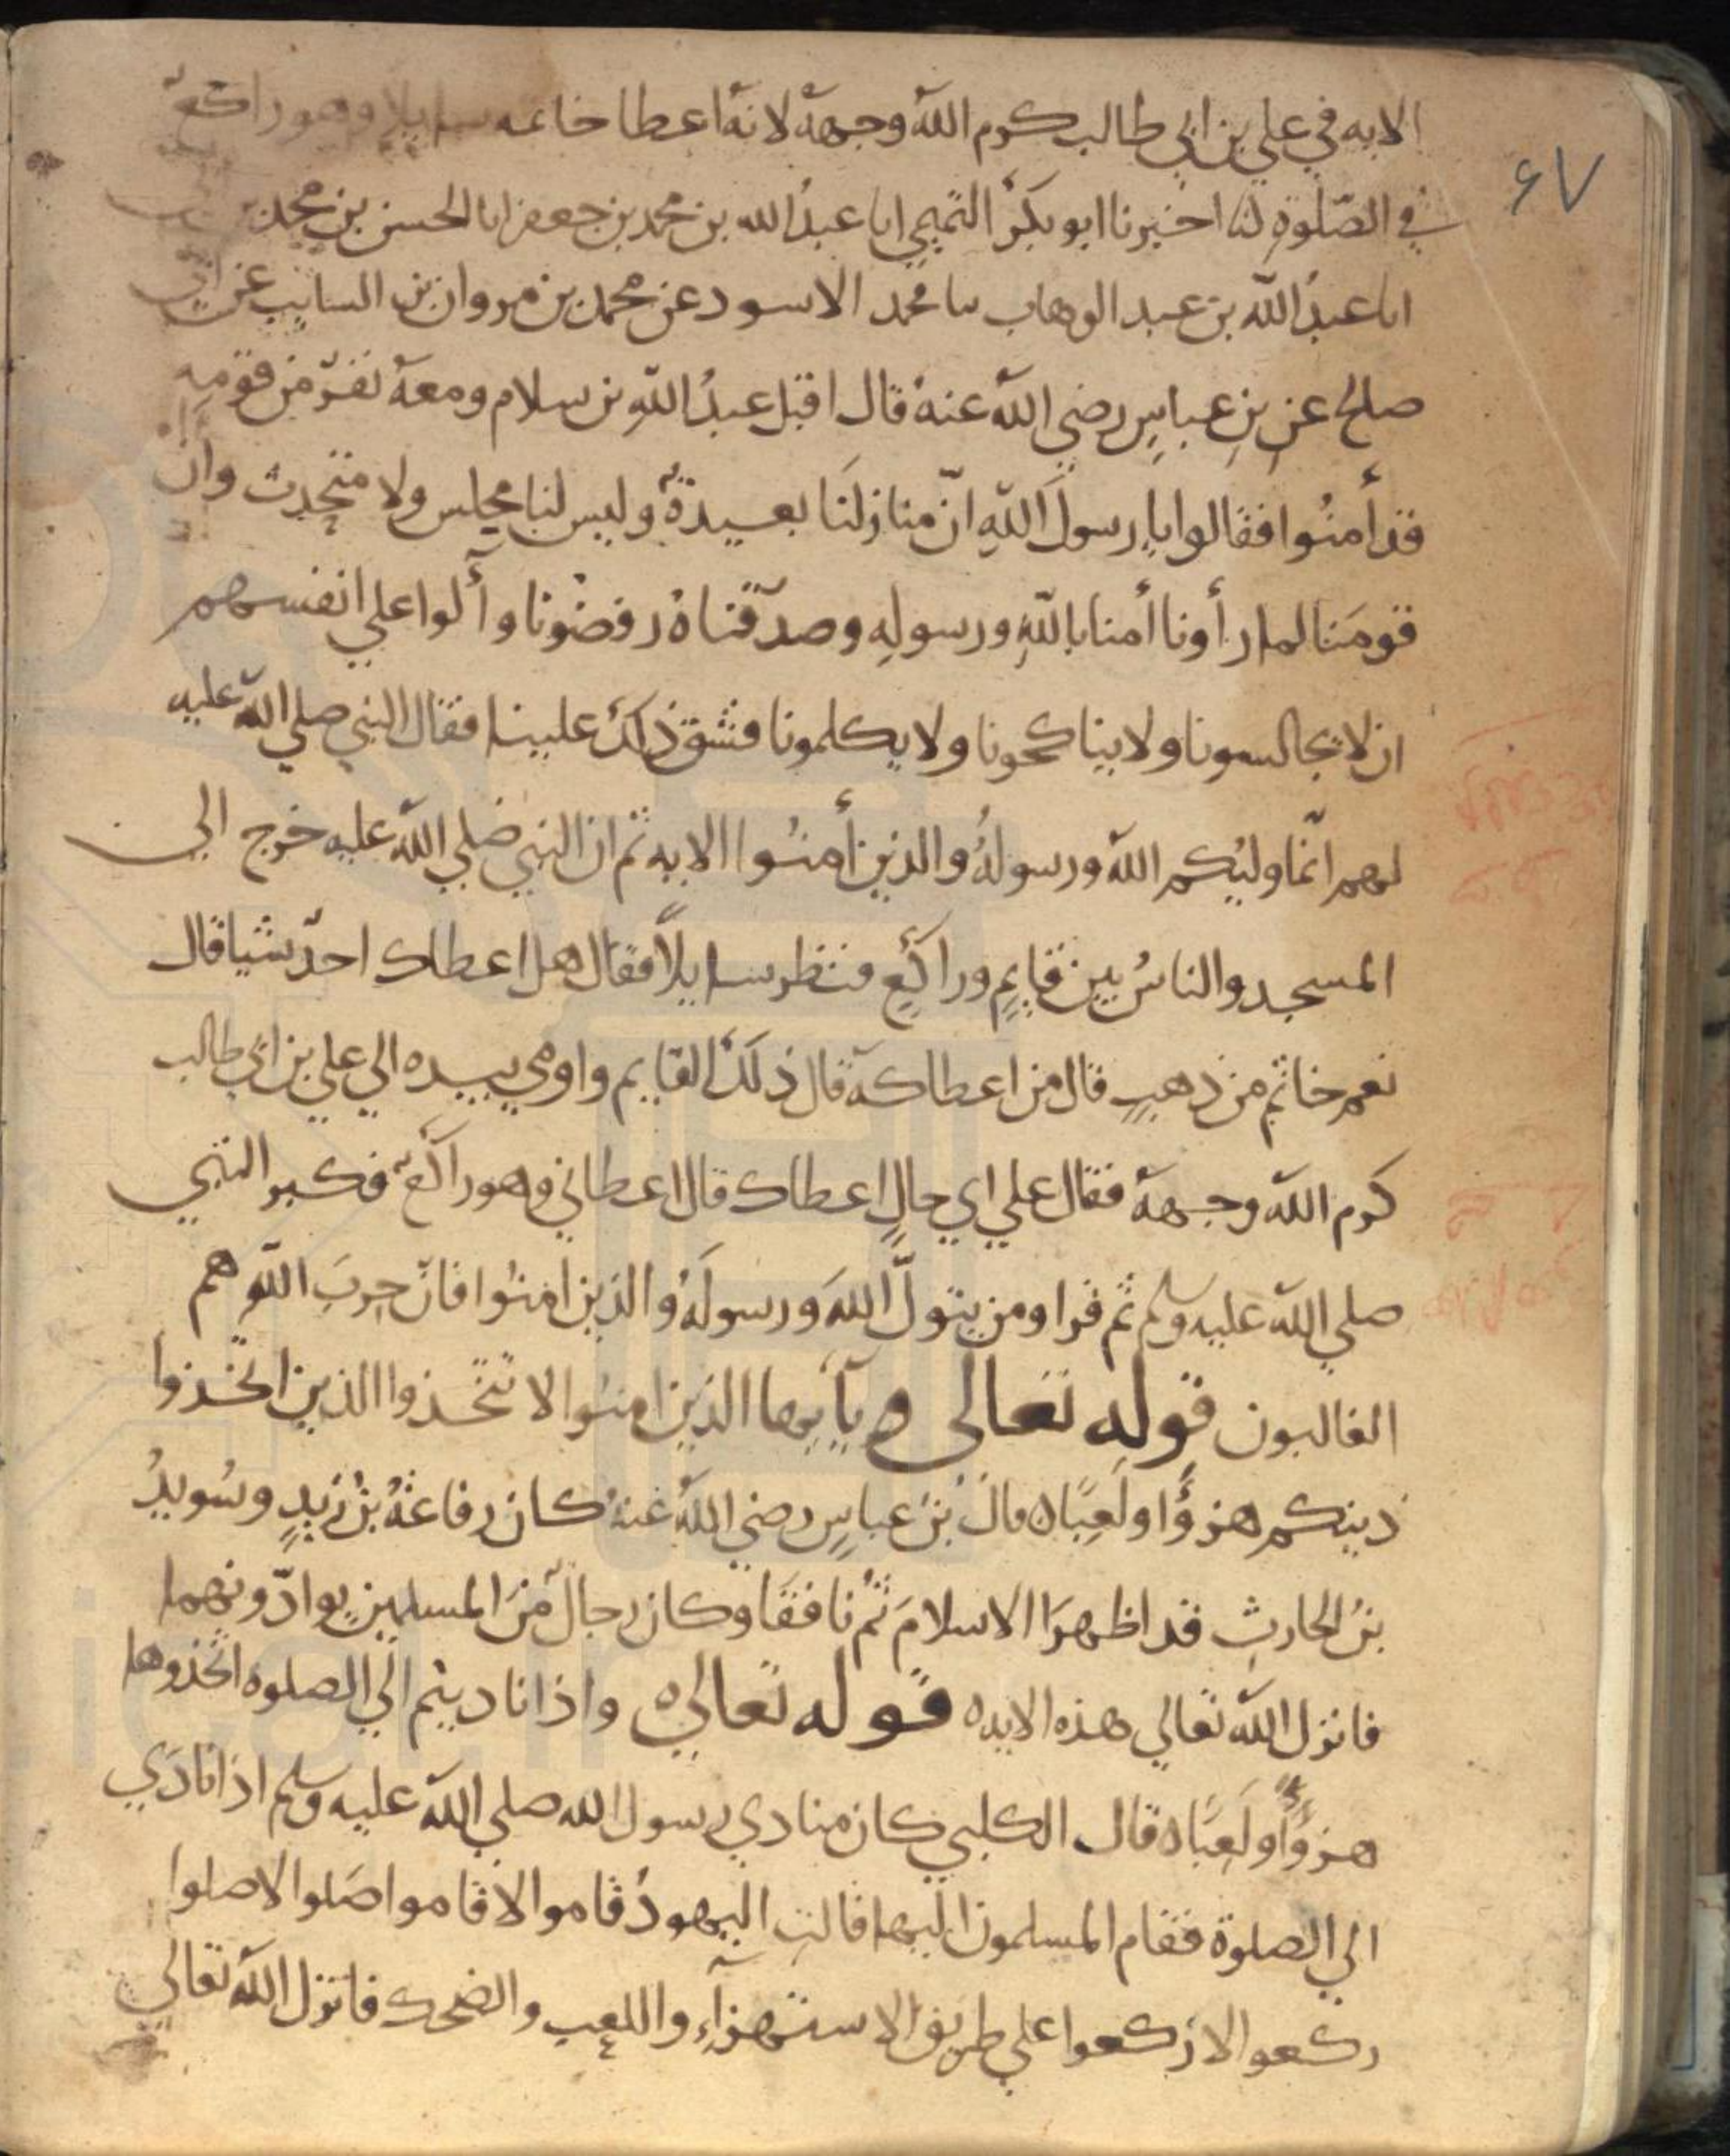 ٤٧
الايه في علي بن ابي طالب كرم الله وجهه لانه اعطا خاتمه سايلا وهو راكع
في الصلوة لنا اخبرنا ابو بكر التميمي ابا عبد الله بن محمد بن جعفر ابا الحسن بن محمد
ابا عبد الله بن عبد الوهاب سا محمد الاسود عن محمد بن مروان بن السايب عن ابي
صالح عن بن عباس رضي الله عنه قال اقبل عبد الله بن سلام ومعه نفر من قومه
قد أمنوا فقالوا يا رسول الله ان منازلنا بعيدة وليس لنا مجلس ولا متحدث وان
قومنا لما رأونا أمنا بالله ورسوله وصدقناه رفضونا وألوا على انفسهم
ان لا يجالسونا ولا يناكحونا ولا يكلمونا فشق ذلك علينا فقال النبي صلي الله عليه
لهم انما وليكم الله ورسوله والذين أمنوا الايه ثم ان النبي صلي الله عليه خرج الي
المسجد والناس بين قايم وراكع فنظر سايلا فقال هل اعطاك احد شيا قال
نعم خاتم من ذهب قال من اعطاكه قال ذلك القايم واومي بيده الي علي بن ابي طالب
كرم الله وجهه فقال علي اي حال اعطاك قال اعطاني وهو راكع فكبر النبي
صلي الله عليه وسلم ثم قرا ومن يتول الله ورسوله والذين امنوا فان حزب الله هم
الغالبون قوله تعالى ه يآيها الذين امنوا لا تتخذوا الذين اتخذوا
دينكم هزؤا ولعبا ه قال بن عباس رضي الله عنه كان رفاعة بن زيد وسويد
بن الحارث قد اظهرا الاسلام ثم نافقا وكان رجال من المسلمين يوادونهما
فانزل الله تعالي هذه الايه ه قوله تعالى ه واذا ناديتم الي الصلوه اتخذوها
هزؤا ولعبا ه قال الكلبي كان منادي رسول الله صلي الله عليه وسلم اذا نادي
الي الصلوة فقام المسلمون اليها قالت اليهود قاموا لا قاموا صلوا لا صلوا
ركعوا لا ركعوا علي طريق الاستهزآء واللعب والضحك فانزل الله تعالي